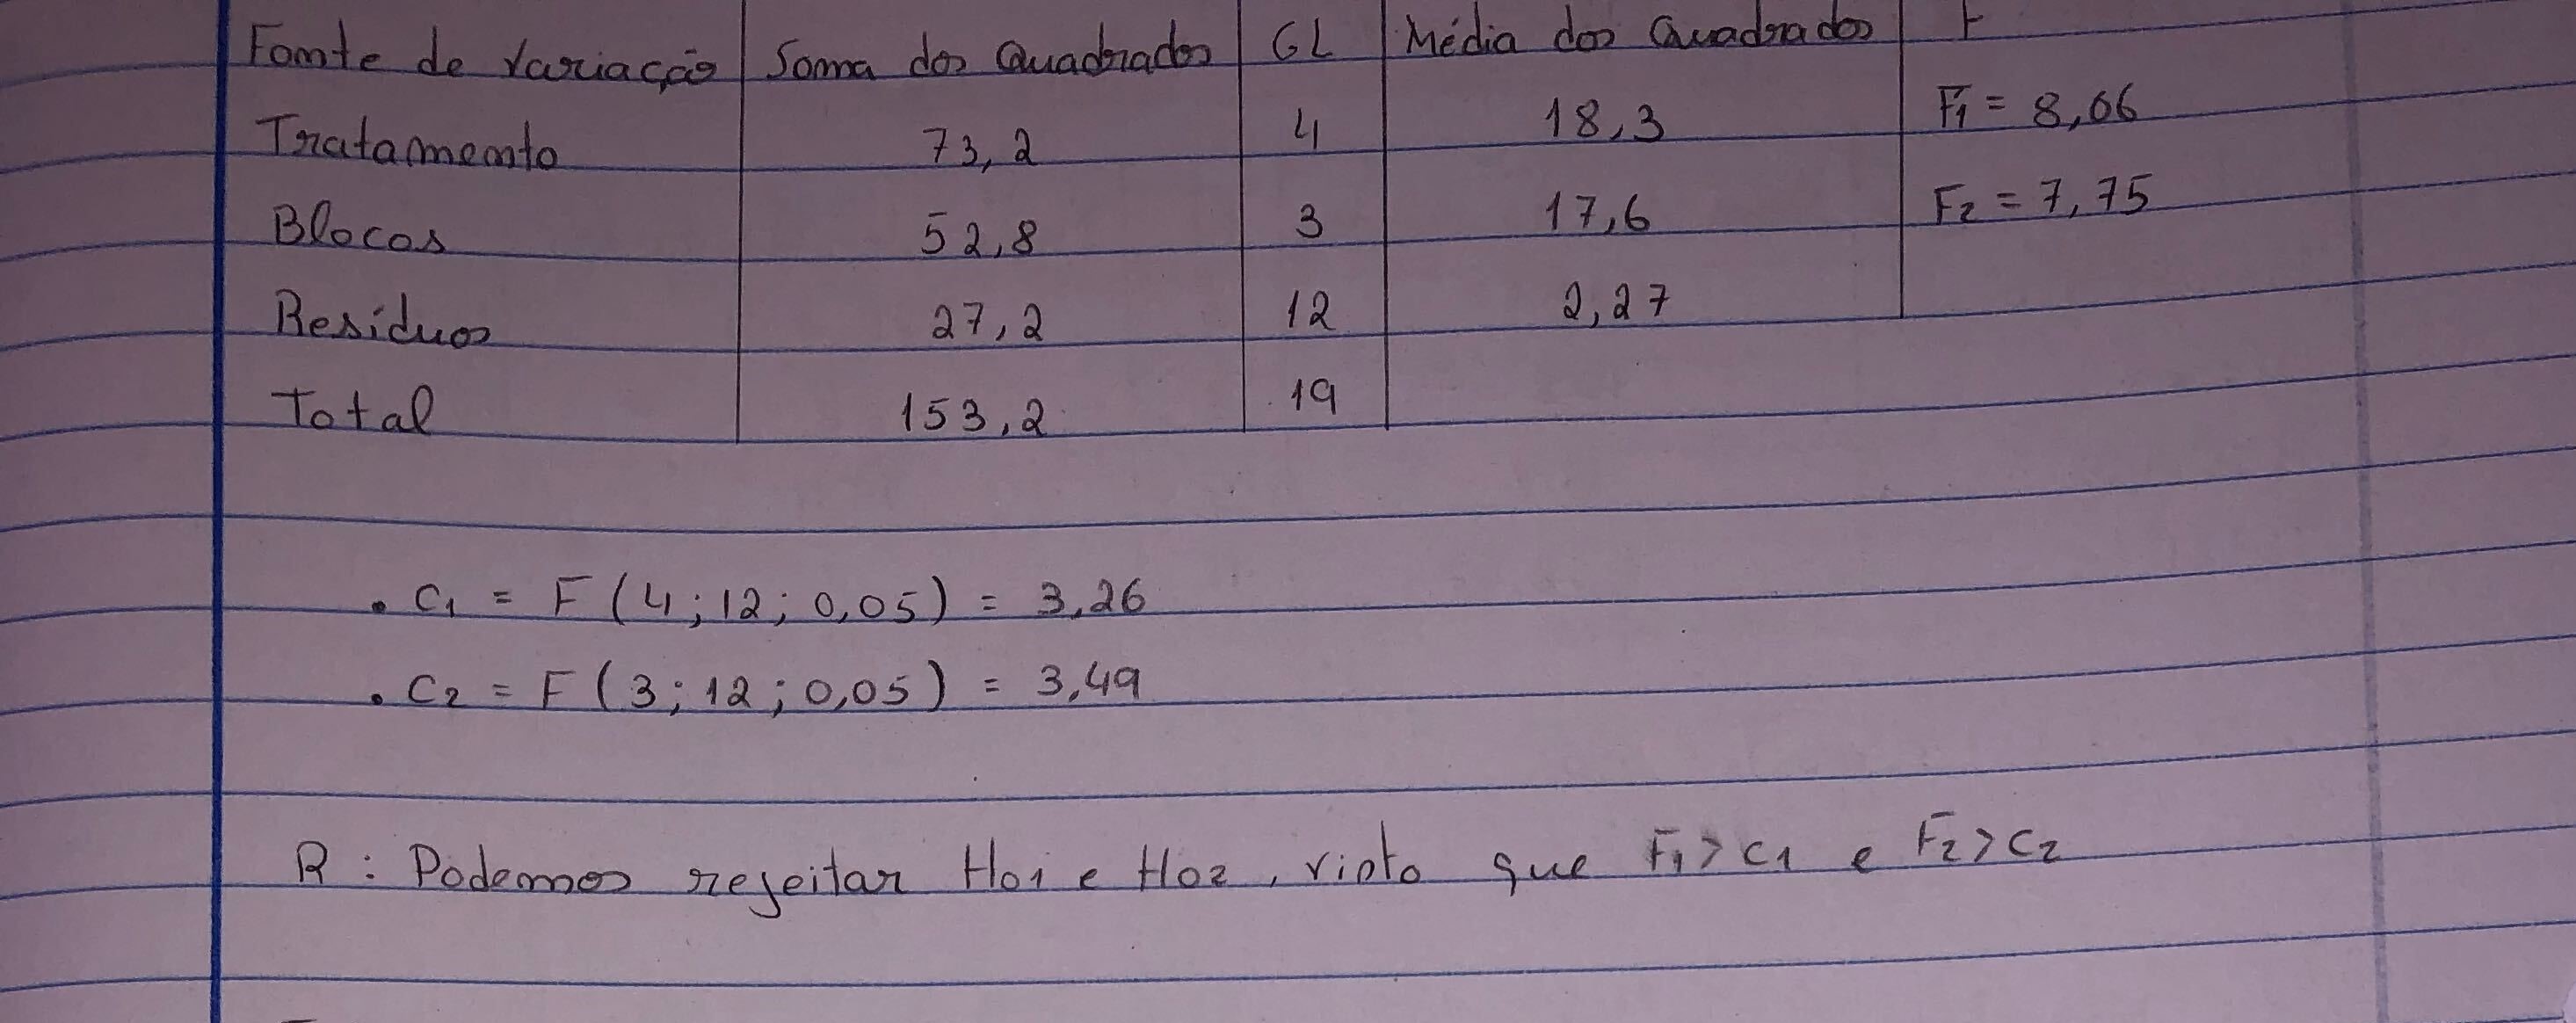 Fonte de Variação Soma dos Quadrados GL Média dos Quadrados F
Tratamento 73,2 4 18,3 F1 = 8,06
Blocos 52,8 3 17,6 F2 = 7,75
Resíduos 27,2 12 2,27
Total 153,2 19
• C1 = F (4; 12; 0,05) = 3,26
• C2 = F (3; 12; 0,05) = 3,49
R: Podemos rejeitar H01 e H02, visto que F1 > C1 e F2 > C2